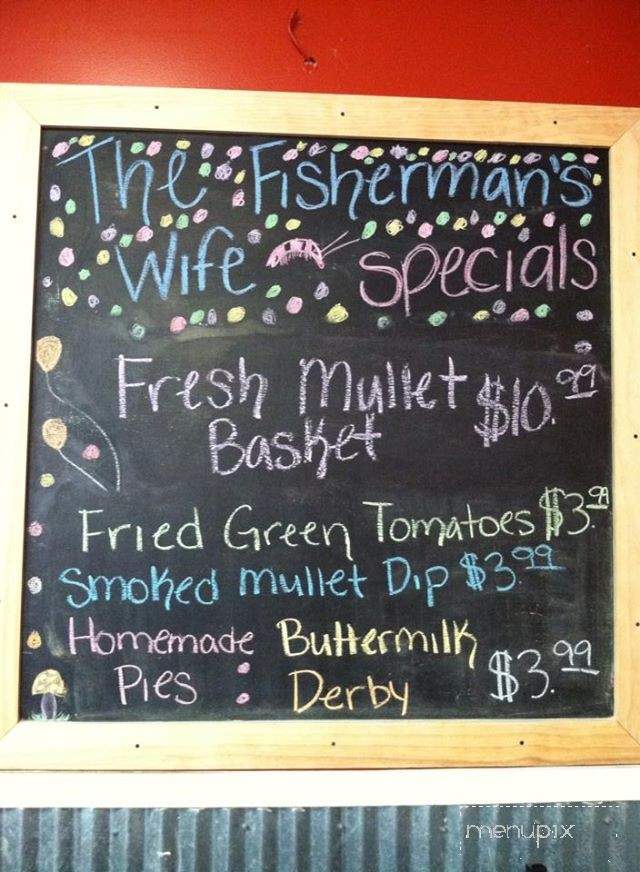 The Fisherman's
Wife specials
Fresh Mullet $10.99
Basket
Fried Green Tomatoes $3.99
Smoked mullet Dip $3.99
Homemade Buttermilk
Pies : Derby $3.99
menupix